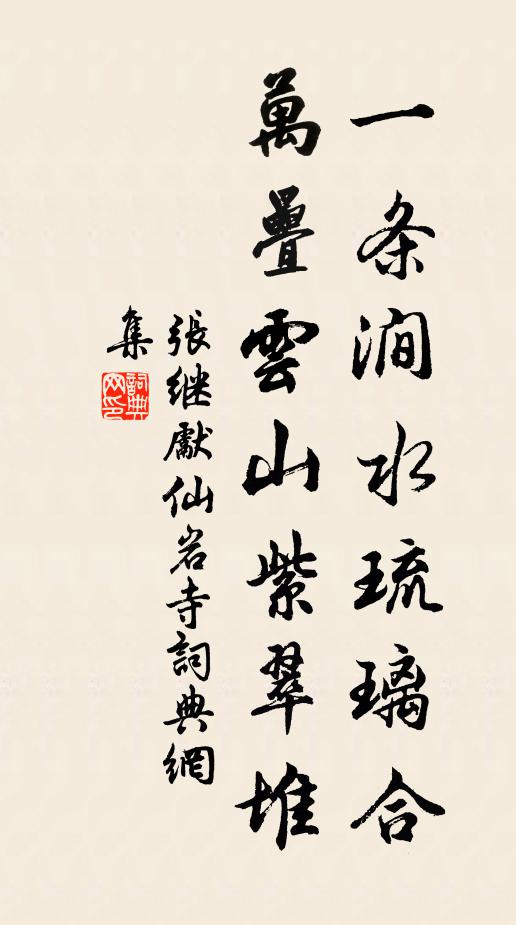 一条澗水琉璃合
萬疊雲山紫翠堆
張继獻仙岩寺詞典網
集
詞典
网印